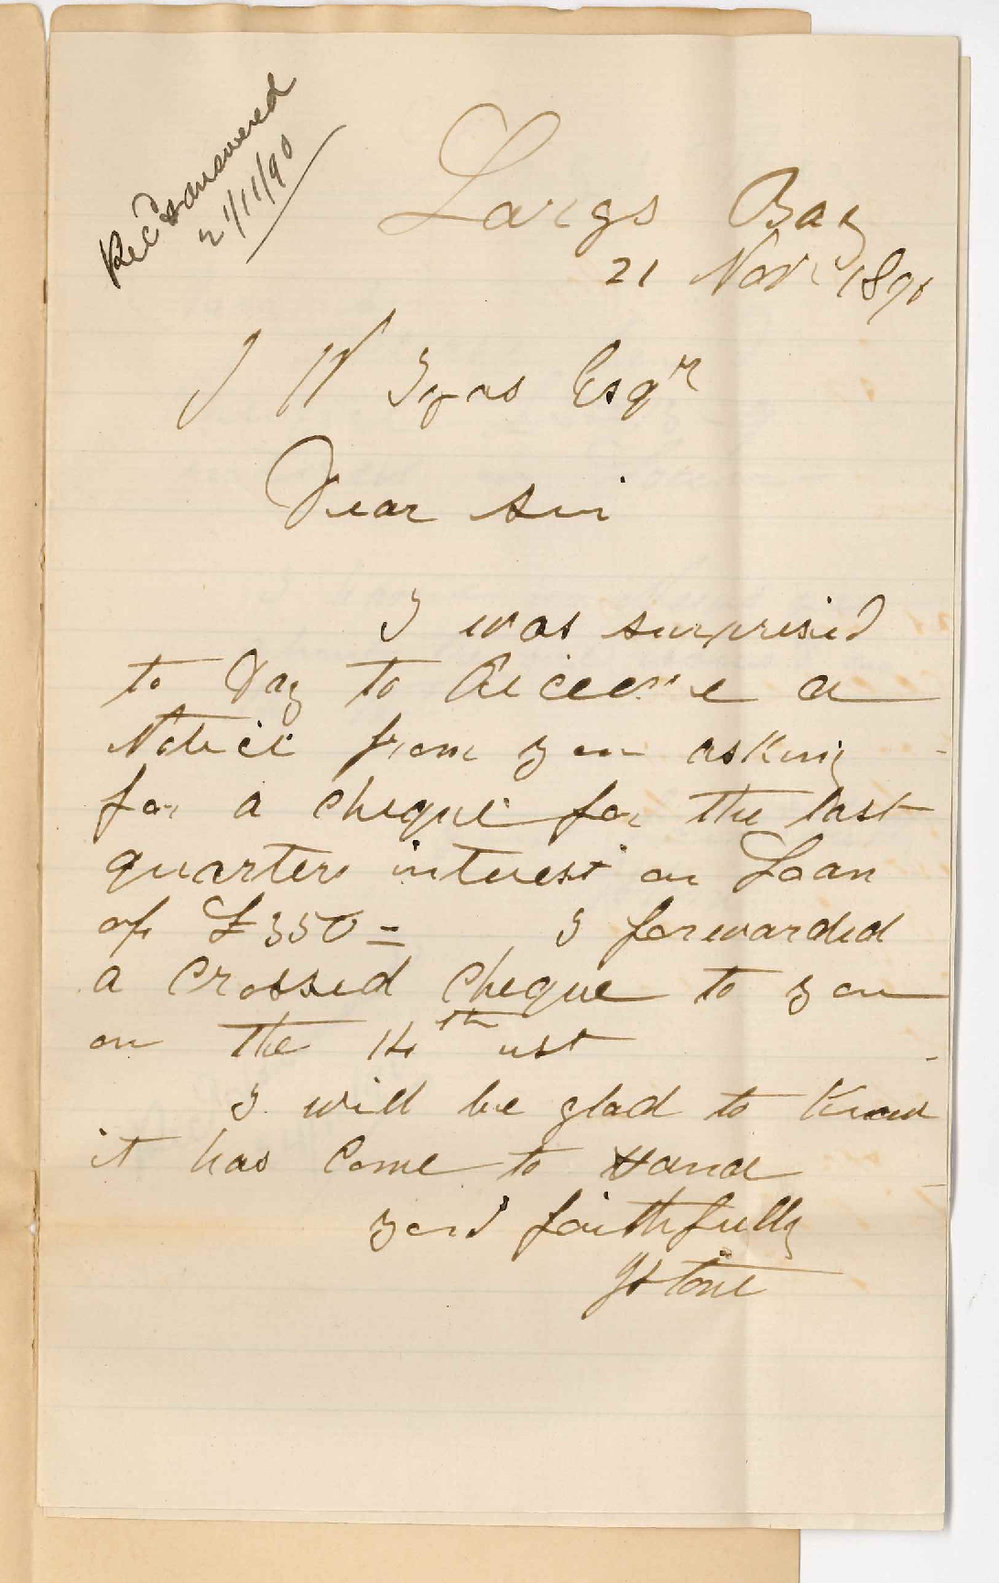 Recd & answered
21/11/90
Largs Bay
21 Nov 1890
J W Esqr
Dear Sir
I was surprised
to Day to Receive a
Notice from you asking
for a cheque for the last
quarters interest on Loan
of £350= I forwarded
a Crossed Cheque to you
on the 14th ust
I will be glad to Know
it has Come to Hand
yours faithfully